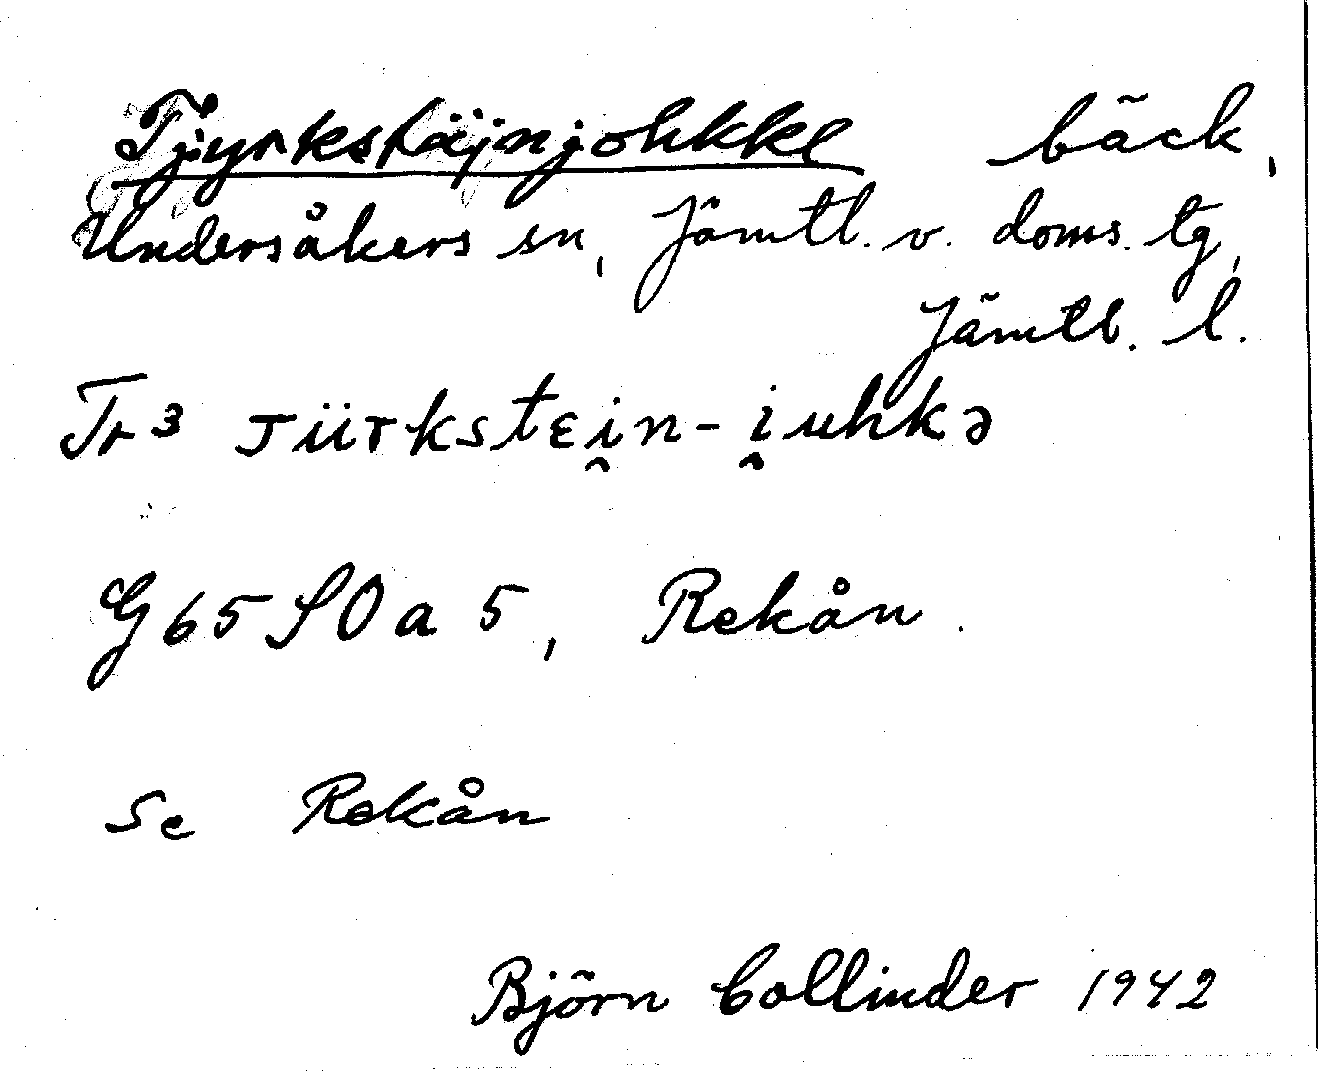 Tjyrkstäjnjohkke bäck,
Undersåkers sn, Jämtl. v. doms. tg,
Jämtl. l.
Tr³ ᴊüᴛkstɛi̯n-i̯uhkə
G65SOa5, Rekån.
Se Rekån
Björn Collinder 1942